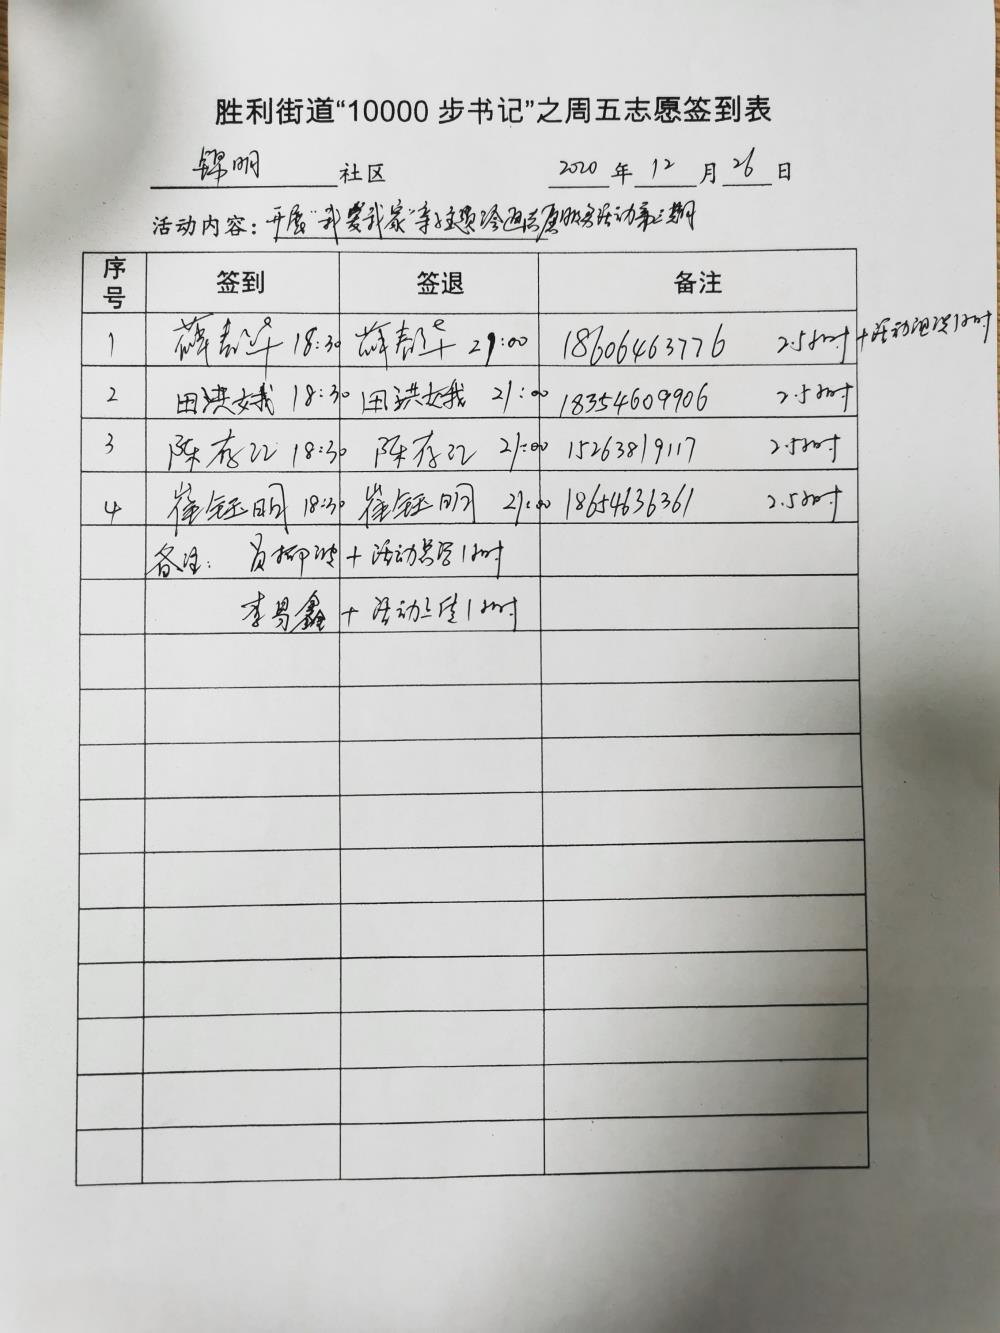 胜利街道“10000步书记”之周五志愿签到表
锦明社区 2020年12月26日
活动内容：开展“我爱我家”亲子主题绘画志愿服务活动第二期
序号 签到 签退 备注
1 薛春华 18:30 薛春华 21:00 18606463776 2.5小时+活动组织1小时
2 田洪娥 18:30 田洪娥 21:00 18354609906 2.5小时
3 陈存江 18:30 陈存江 21:00 15263819117 2.5小时
4 崔钰明 18:30 崔钰明 21:00 18654636361 2.5小时
备注： 柳波+活动1小时
李昌鑫+活动1小时